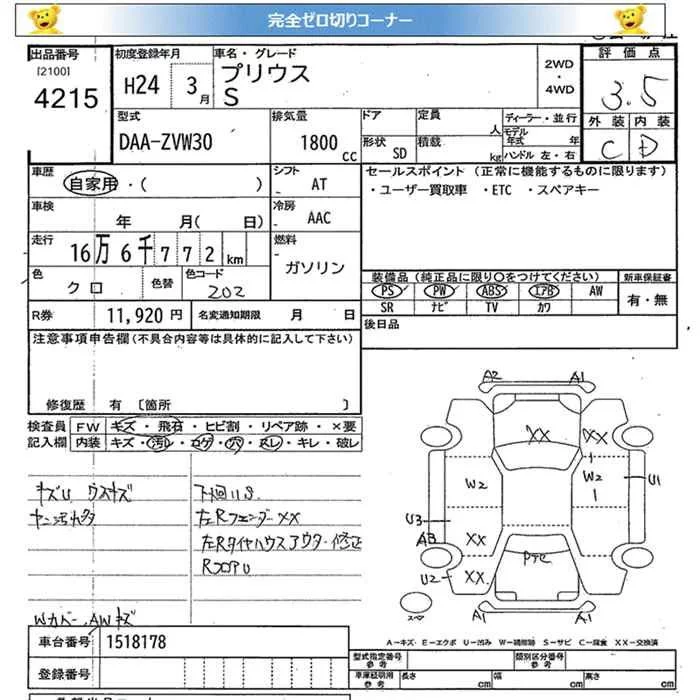 完全ゼロ切りコーナー
出品番号
[2100]
4215
初度登録年月
H24 3月
車名・グレード
プリウス
S
2WD
・
4WD
評価点
3.5
外装 内装
C D
型式
DAA-ZVW30
排気量
1800 CC
ドア
定員
人
形状
SD
積載
kg
ディーラー・並行
モデル年式 年
ハンドル 左・右
車歴
自家用・( )
シフト
AT
セールスポイント (正常に機能するものに限ります)
・ユーザー買取車 ・ETC ・スペアキー
車検
年 月( 日)
冷房
AAC
走行
16万6千772km
燃料
ガソリン
色
クロ
色替
色コード
202
装備品 (純正品に限り○をつけてください)
新車保証書
PS PW ABS エアB AW
SR ナビ TV カワ
有・無
R券
11,920 円
名変通知期限 月 日
後日品
注意事項申告欄 (不具合内容等は具体的に記入して下さい)
修復歴 有 〔箇所 〕
検査員
記入欄
FW キズ・飛石・ヒビ割・リペア跡・×要
内装 キズ・汚レ・コゲ・穴・スレ・キレ・破レ
キズU ウスキズ
下回りS
左Rフェンダー××
左Rタイヤハウスアウター修正
RフロアU
Wカバー、AWキズ
A2 A1
XX XX
W2 W2
U1
U3
A3
XX
U2 XX
A1 A1
スペア
A－キズ・E－エクボ U－凹み W－補修跡 S－サビ C－腐食 XX－交換済
車台番号
1518178
登録番号
型式指定番号
参考
類別区分番号
参考
車庫証明用
参考
長さ cm
幅 cm
高さ cm